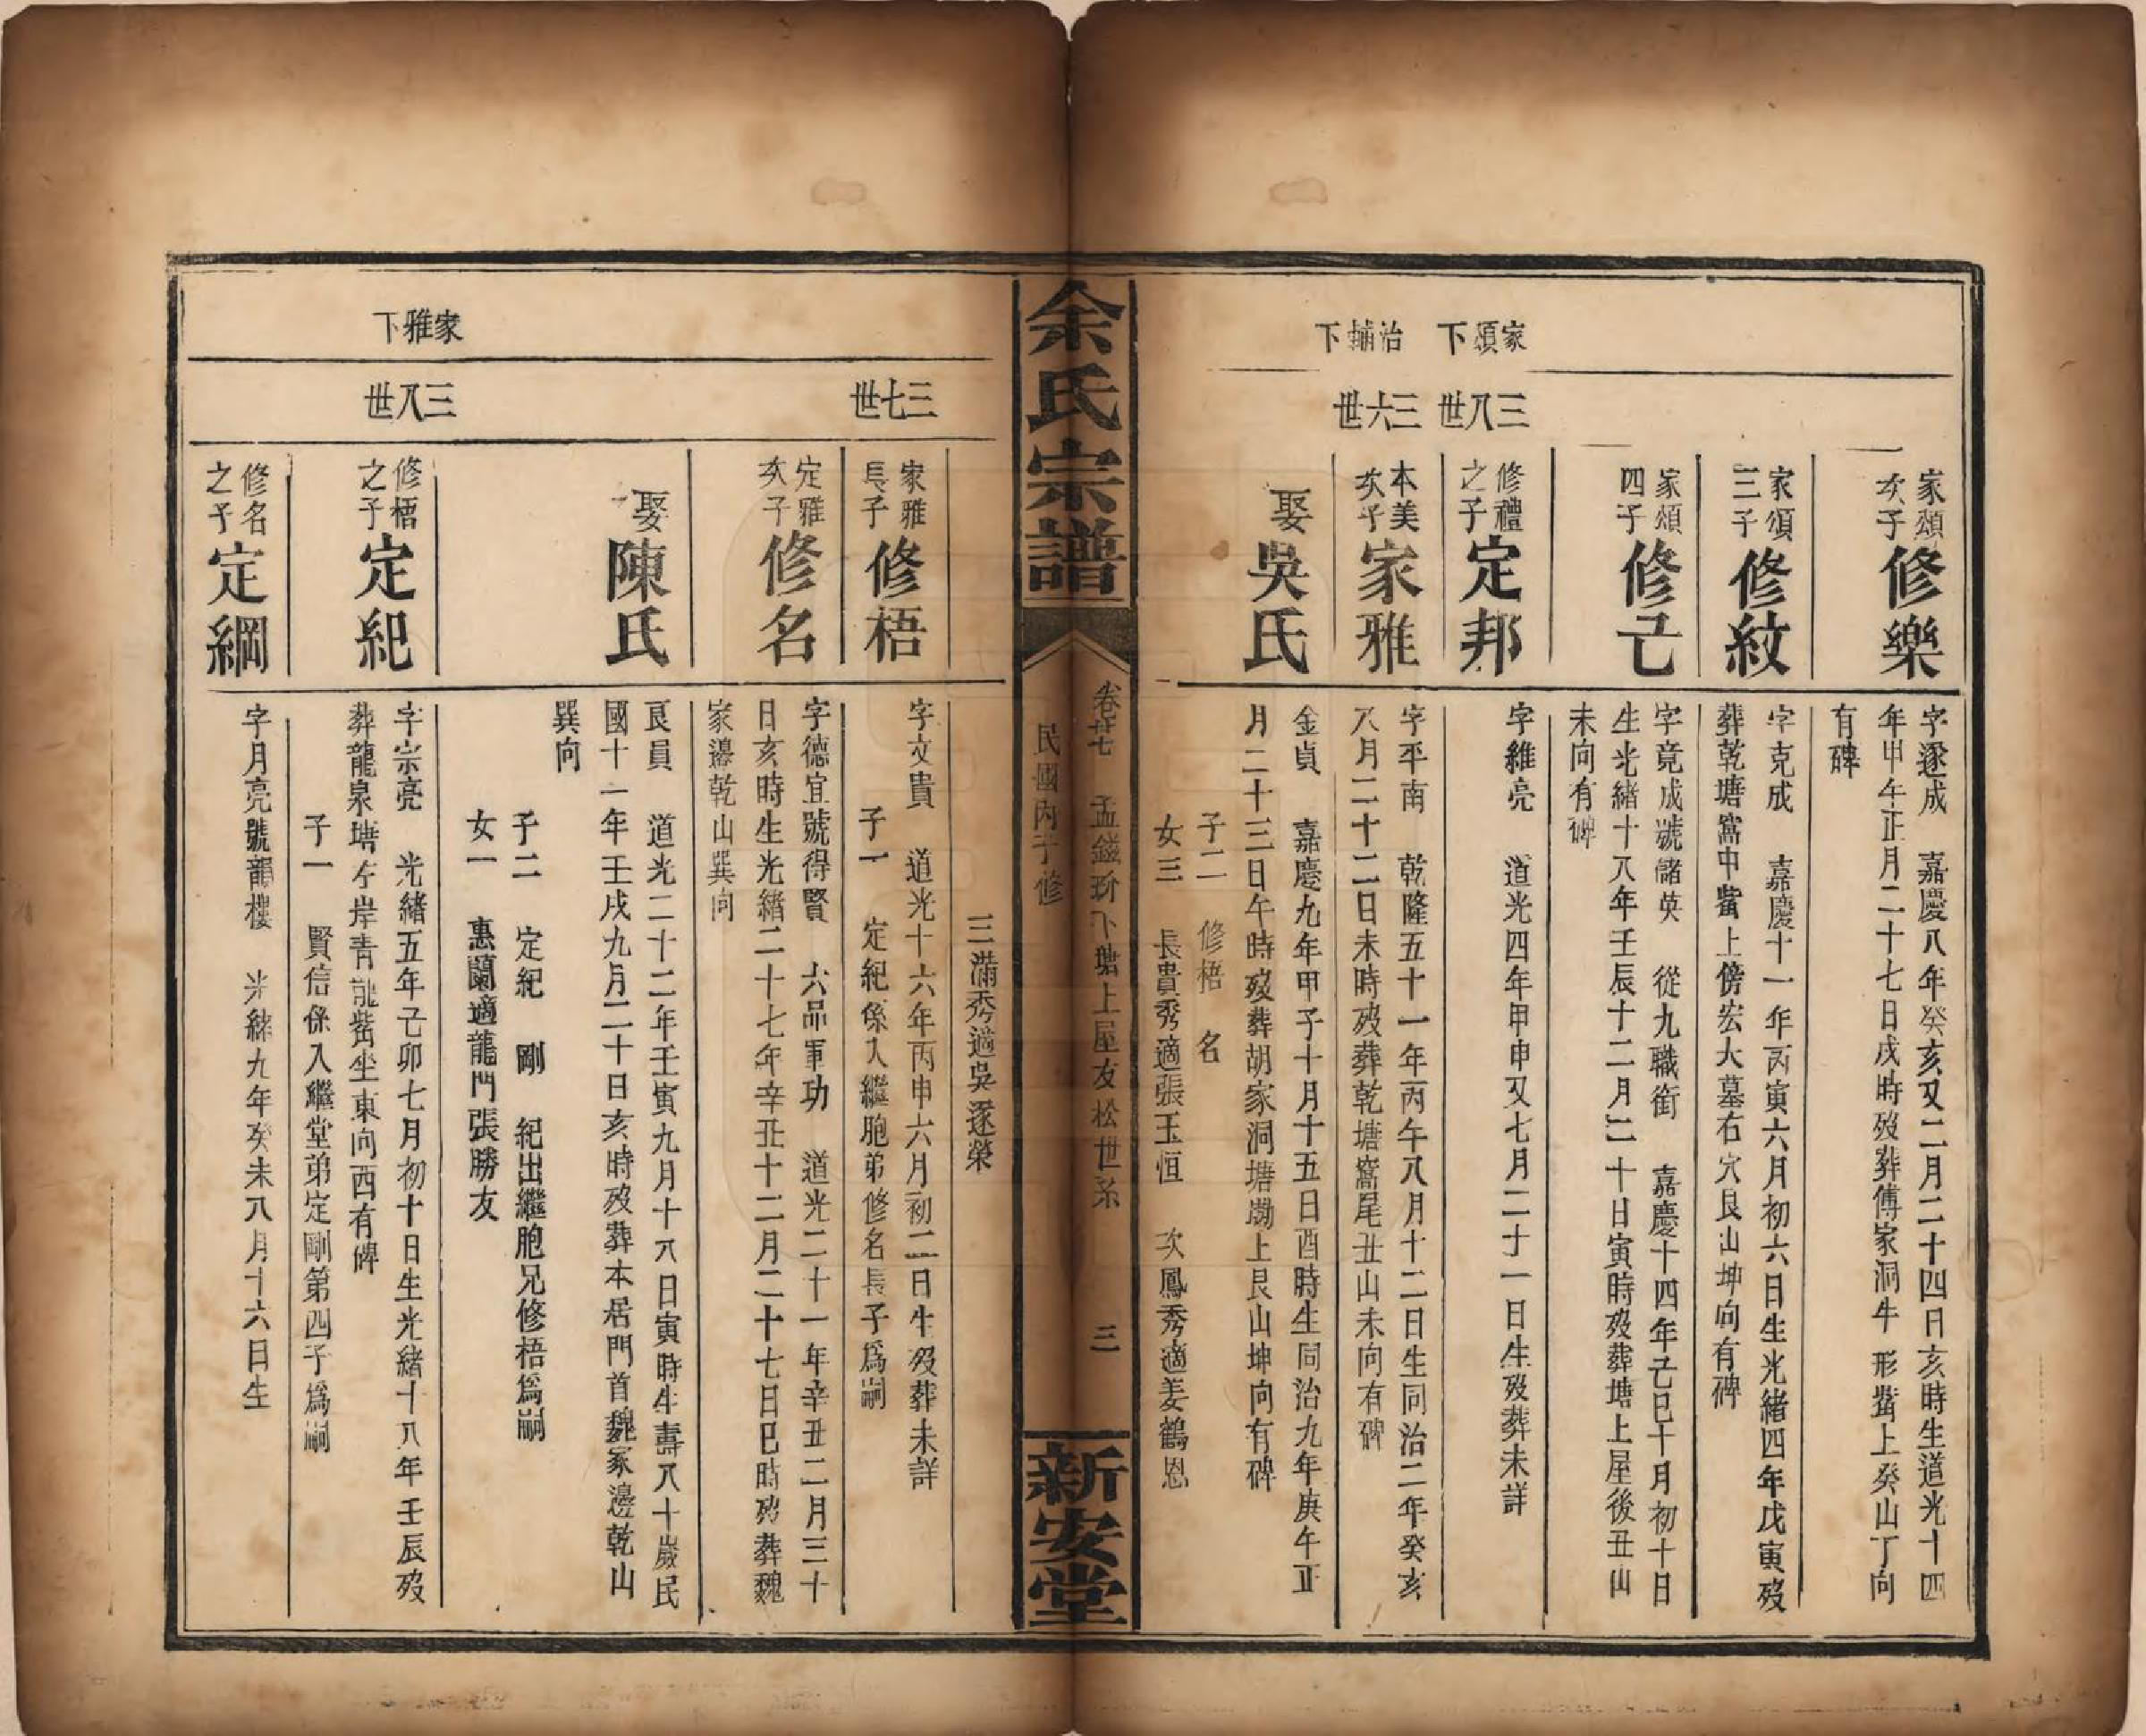 家頌下
治輔下
三八世
三六世
家頌
次子
修樂
字逐成　嘉慶八年癸亥又二月二十四日亥時生道光十四
年甲午正月二十七日戌時歿葬傅家洞牛形觜上癸山丁向
有碑
家頌
三子
修紋
字克成　嘉慶十一年丙寅六月初六日生光緒四年戊寅歿
葬乾塘窩中觜上傍宏大墓右穴艮山坤向有碑
家頌
四子
修己
字竟成號諸英　從九職銜　嘉慶十四年己巳十月初十日
生光緒十八年壬辰十二月二十日寅時歿葬塘上屋後丑山
未向有碑
修禮
之子
定邦
字維亮　道光四年甲申又七月二十一日生歿葬未詳
本美
次子
家雅
字平南　乾隆五十一年丙午八月十二日生同治二年癸亥
八月二十二日未時歿葬乾塘窩尾丑山未向有碑
娶
吳氏
金貞　嘉慶九年甲子十月十五日酉時生同治九年庚午正
月二十三日午時歿葬胡家洞塘坳上艮山坤向有碑
子二　修梧　名
女三　長貴秀適張玉恒　次鳳秀適姜鶴恩
余氏宗譜
卷廿七　孟錢玠卜塘上屋友松世系　三
民國丙子修
新安堂
家雅下
三七世
三八世
三滿秀適吳逐榮
家雅
長子
修梧
字文貴　道光十六年丙申六月初二日生歿葬未詳
子一　定紀係入繼胞弟修名長子爲嗣
定雅
次子
修名
字德宜號得賢　六品軍功　道光二十一年辛丑二月三十
日亥時生光緒二十七年辛丑十二月二十七日巳時歿葬魏
家邊乾山巽向
娶
陳氏
良員　道光二十二年壬寅九月十八日寅時生壽八十歲民
國十一年壬戌九月二十日亥時歿葬本居門首魏家邊乾山
巽向
子二　定紀　剛　紀出繼胞兄修梧爲嗣
女一　惠蘭適龍門張勝友
修梧
之子
定紀
字宗亮　光緒五年己卯七月初十日生光緒十八年壬辰歿
葬龍泉塘左岸青龍觜坐東向西有碑
子一　賢信係入繼堂弟定剛第四子爲嗣
修名
之子
定綱
字月亮號龍樓　光緒九年癸未八月十六日生